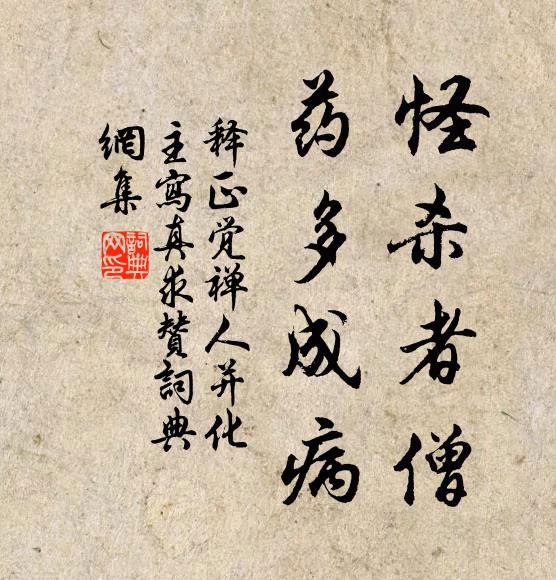 怪杀者僧
药多成病
释正觉禅人并化
主寫真求赞詞典
網集
詞典网印